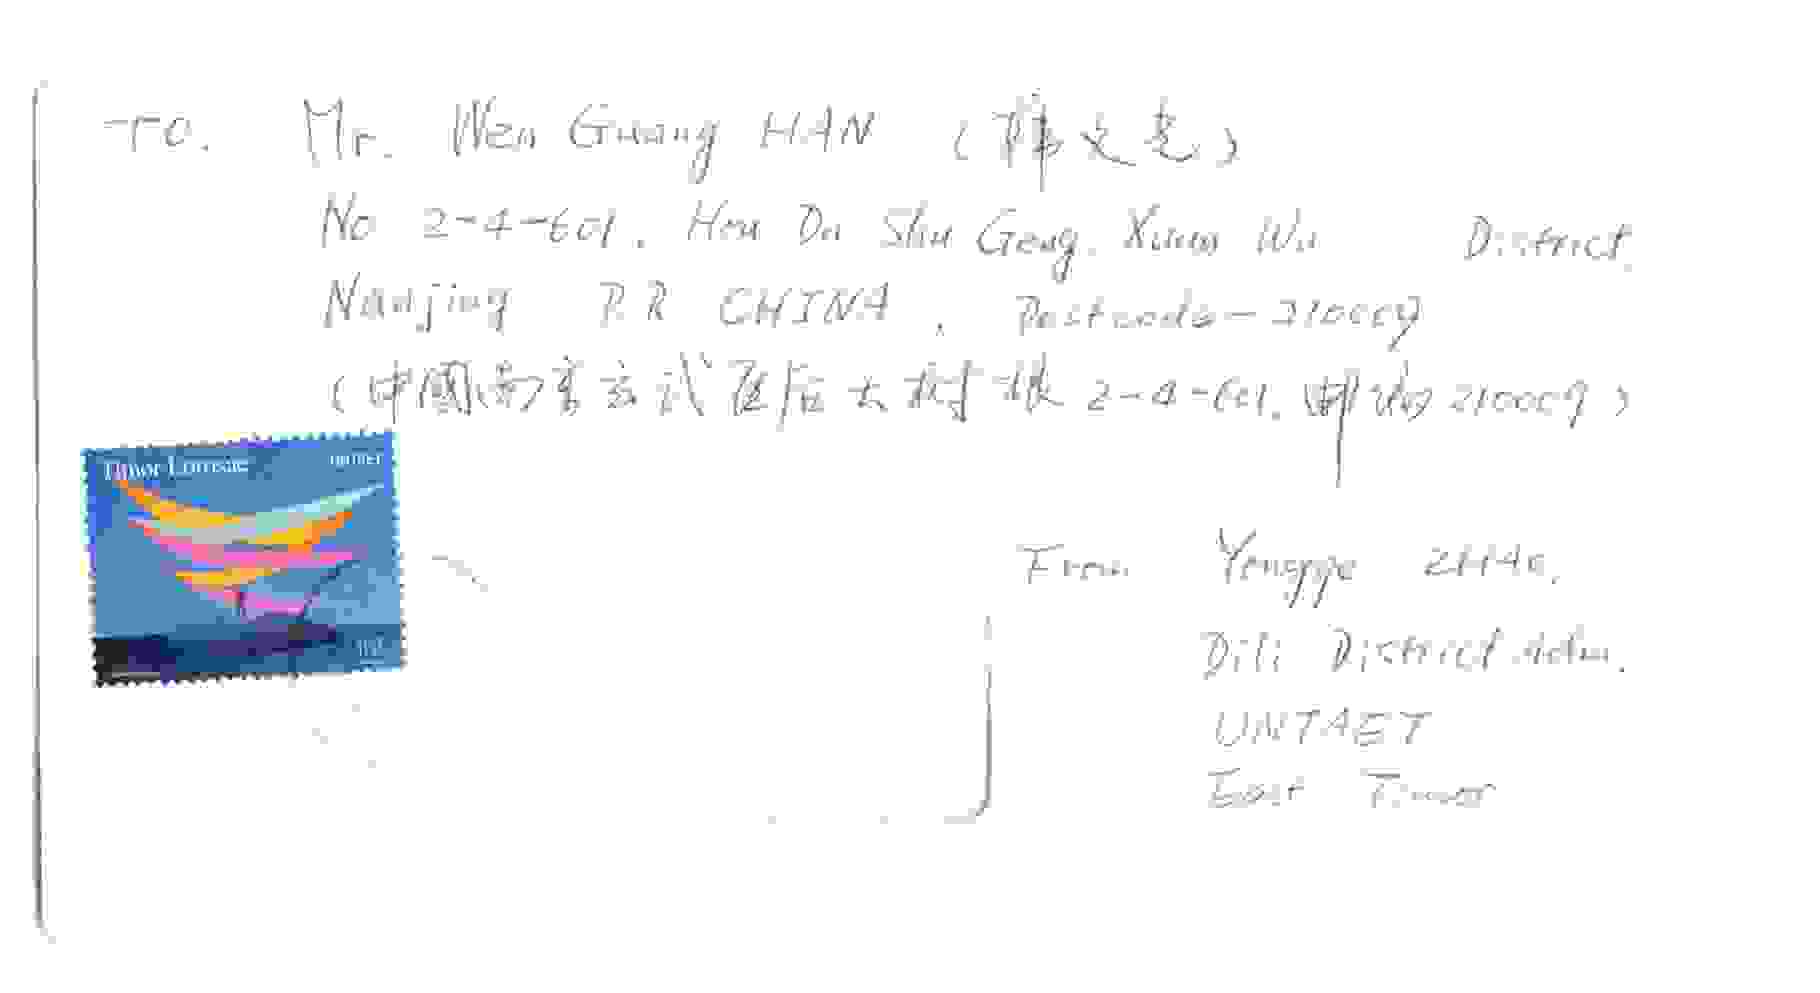 TO. Mr. Wen Guang HAN (韩文光)
No 2-4-601. Hou Da Shu Geng. Xuan Wu District.
Nanjing P.R CHINA, Postcode-210009
(中國南京玄武區后大树根 2-4-601. 邮 210009)
Timor Lorosae
From Yongge ZHAO.
Dili District Adm.
UNTAET
East Timor